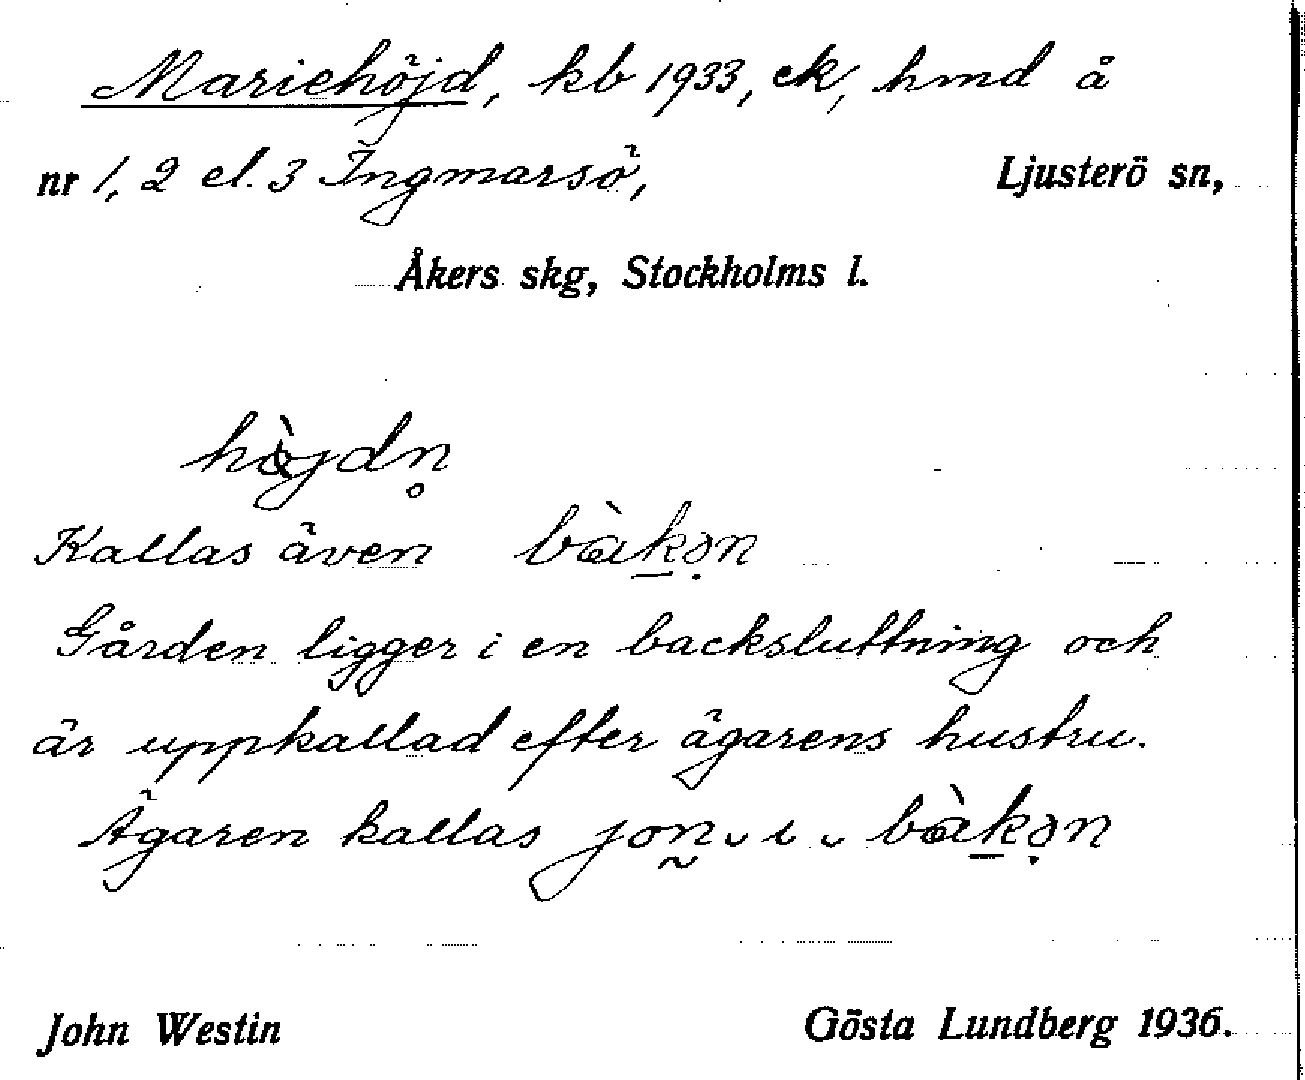 Mariehöjd, kb 1933, ek, hmd å
nr 1, 2 el. 3 Ingmarsö, Ljusterö sn,
Åkers skg, Stockholms l.
hø̀jdn̥
Kallas även bàk̠ə̣n
Gården ligger i en backsluttning och
är uppkallad efter ägarens hustru.
Ägaren kallas jon̰ ᴗ i ᴗ bàk̠ə̣n
John Westin Gösta Lundberg 1936.